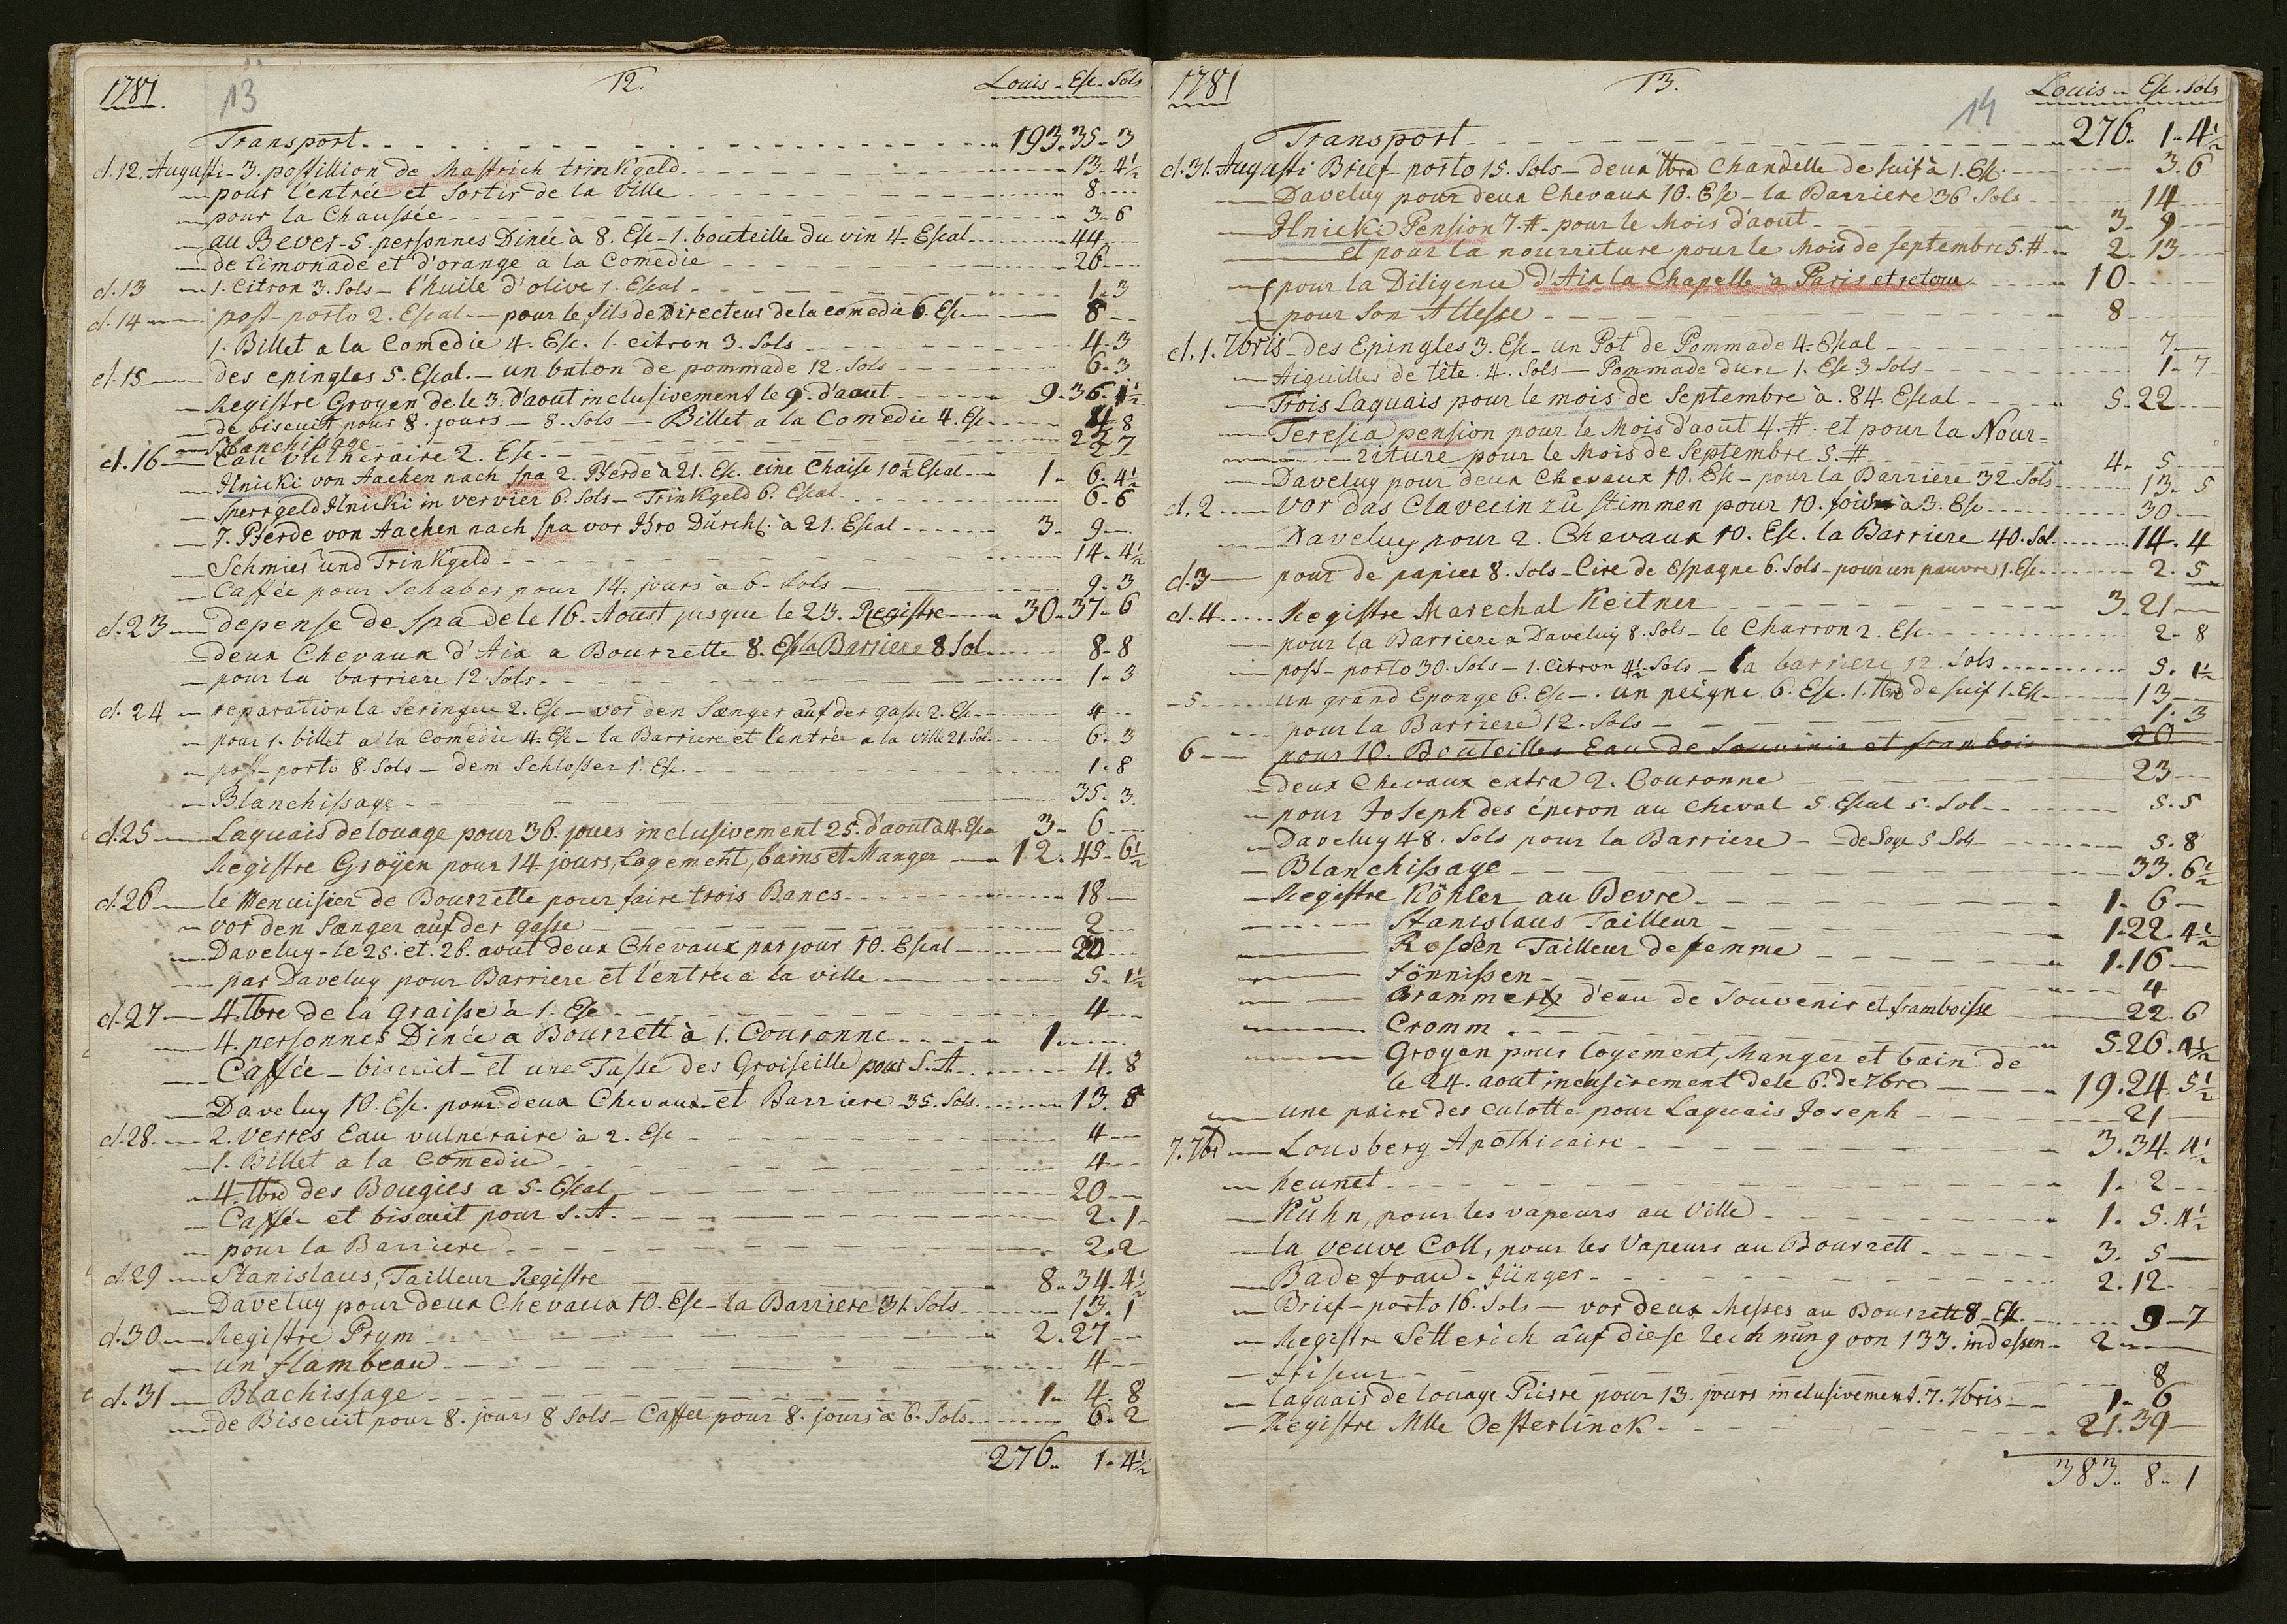 1781. 13 12. Louis - Esc - Sols
Transport 193. 35. 3
d. 12. Augusti - 3. postillion de Mastrich trinkgeld 13. 4½
pour l'entrée et Sortir de la Ville 8
pour la Chaussée 3. 6
au Bever - 5. personnes Dinée à 8. Esc - 1. bouteille du vin 4. Escal 44
de limonade et d'orange a la Comedie 26
d. 13 1. Citron 3. Sols - l'huile d'olive 1. Escal 1. 3
d. 14 post-porto 2. Escal - pour le fils de Directeur de la comedie 6. Esc 8
1. Billet a la Comedie 4. Esc. 1. citron 3. Sols 4. 3
d. 15 des epingles 5. Escal. - un baton de pommade 12. Sols 6. 3
Registre Groyen de le 3. d'aout inclusivement le 9. d'aout 9. 36. 1½
de biscuit pour 8. jours - 8. Sols - Billet a la Comedie 4. Esc 4. 8
Blanchissage 22 7
d. 16 Eau vulneraire 2. Esc. 2
Ilnicki von Aachen nach Spa 2. Pferde à 21. Esc. eine Chaise 10½ Escal 1. 6. 4½
Sperrgeld Ilnicki in vervier 6. Sols - Trinkgeld 6. Escal 6. 6
7. Pferde von Aachen nach Spa vor Ihro Dürchl. à 21. Escal 3. 9
Schmier und Trinkgeld 14. 4½
Caffée pour Schaber pour 14. jours à 6. Sols 9. 3
d. 23 depense de Spa de le 16. Aoust jusque le 23. Registre 30. 37. 6
deux Chevaux d'Aix a Bourzette 8. Esc la Barriere 8 Sol 8. 8
pour la barriere 12. Sols. 1. 3
d. 24 reparation la Seringue 2. Esc - vor den Sænger auf der gasse 2. Esc 4
pour 1. billet a la Comedie 4. Esc - la Barriere et l'entrée a la ville 21. Sol. 6. 3
post-porto 8. Sols - dem Schlosser 1. Esc. 1. 8
Blanchissage 35. 3.
d. 25 Laquais de louage pour 36. jours inclusivement 25. d'aout à 4. Esc 3. 6
Registre Groÿen pour 14. jours, Logement, bains et Manger 12. 45. 6½
d. 26 le Menuisier de Bourzette pour faire trois Bancs 18
vor den Sænger auf der gasse 2
Daveluy - le 25. et. 26. aout deux Chevaux par jour 10. Escal 20
par Daveluy pour Barriere et l'entrée a la ville 5. 1½
d. 27 4. tbre de la graisse à 1. Esc 4
4. personnes Dinée a Bourzett à 1. Couronne 1.
Caffée - biscuit - et une Tasse des Groiseille pour S. A. 4. 8
Daveluy 10. Esc. pour deux Chevaux et Barriere 35. Sols 13. 8
d. 28. 2. verres Eau vulneraire à 2. Esc 4
1. Billet a la Comedie 4
4. tbre des Bougies a 5. Escal 20
Caffée et biscuit pour S. A. 2. 1
pour la Barriere 2. 2
d. 29 Stanislaus, Tailleur Registre 8. 34. 4½
Daveluy pour deux Chevaux 10. Esc - la Barriere 31. Sols 13. 1
d. 30 Registre Prym 2. 27
un flambeau 4
d. 31 Blachissage 1. 4. 8
de Biscuit pour 8. jours 8 Sols - Caffée pour 8. jours à 6. Sols 6. 2
276. 1. 4½
1781 13. 14 Louis - Esc. Sols
Transport 276. 1. 4½
d. 31. Augusti Brief-porto 15. Sols - deux tbre Chandelle de suif à 1. Esc. 3. 6
Daveluy pour deux Chevaux 10. Esc - la Barriere 36 Sols 14
Ilnicki Pension 7. # pour le Mois d'aout 3. 9
et pour la nourriture pour le Mois de septembre 5. # 2. 13
pour la Diligence d'Aix la Chapelle à Paris et retour 10
pour Son Altesse 8
d. 1. 7bris - des Epingles 3. Esc - un Pot de Pommade 4. Escal 7
Aiguilles de tête. 4. Sols - Pommade dure 1. Esc 3 Sols 1. 7
Trois Laquais pour le mois de Septembre à. 84. Escal 5. 22
Teresia pension pour le Mois d'aout 4. #. et pour la Nour=
riture pour le Mois de Septembre 5. # 4. 5
Daveluy pour deux Chevaux 10. Esc - pour la Barriere 32. Sols 13. 5
d. 2 vor das Clavecin zu stimmen pour 10. fois à 3. Esc 30
Daveluy pour 2. Chevaux 10. Esc. la Barriere 40. Sol 14. 4
d. 3 pour de papier 8. Sols - Cire de Espagne 6. Sols - pour un pauvre 1. Esc 2. 5
d. 4 Registre Marechal Keitner 3. 21
pour la Barriere a Daveluy 8. Sols - le Charron 2. Esc 2. 8
post-porto 30. Sols - 1. Citron 4½ Sols - la barriere 12. Sols 5. 1½
5 un grand Eponge 6. Esc - un peigne 6. Esc. 1. tbre de suif 1. Esc 13
pour la Barriere 12. Sols 1. 3
6 pour 10. Bouteilles Eau de Souvenir et frambois 20
deux Chevaux extra 2. Couronne 23
pour Joseph des éperon au Cheval 5. Escal 5. Sol 5. 5
Daveluy 48. Sols pour la Barriere - de Soye 5 Sols 5. 8
Blanchissage 33. 6½
Registre Köhler au Bevre 1. 6
Stanislaus Tailleur 1. 22. 4½
Rosden Tailleur de femme 1. 16
Jönnissen 4
Brammertz d'eau de Souvenir et framboisse 22. 6
Cromm 5. 26. 4½
Groyen pour logement, Manger et bain de
le 24. aout inclusivement de le 6. de 7bre 19. 24. 5½
une paire des culotte pour Laquais Joseph 21
7. 7br Lousberg Apothicaire 3. 34. 4½
heunet 1. 2
Kühn, pour les vapeurs au Ville 1. 5. 4½
la veuve Coll, pour les Vapeurs au Bourzett 3. 5
Badefrau - Jünger 2. 12
Brief-porto 16. Sols - vor deux Messes au Bourzett 8. Esc 9. 7
Registre Setterich auf diese rechnung von 133. indessen 2
friseur 8
laquais de louage Pierre pour 13. jours inclusivement. 7. 7bris 1. 6
Registre Mlle Oesterlinck 21. 39
383. 8. 1